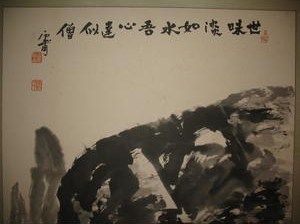 世味淡如水吾心遠似僧